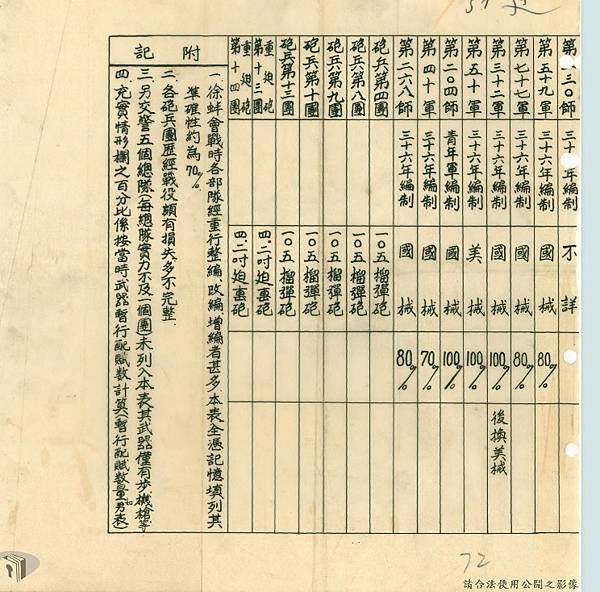 第一三〇師 三十 年編制 不詳
第五十九軍 三十六年編制 國械 80%
第七十七軍 三十六年編制 國械 80%
第三十二軍 三十六年編制 國械 100% 後換美械
第五十軍 三十六年編制 美械 100%
第二〇四師 青年軍編制 國械 100%
第四十軍 三十六年編制 國械 70%
第二六八師 三十六年編制 國械 80%
砲兵第四團 一〇五榴彈砲
砲兵第八團 一〇五榴彈砲
砲兵第九團 一〇五榴彈砲
砲兵第十團 一〇五榴彈砲
砲兵第十三團 一〇五榴彈砲
重迫砲第十三團 四.二吋迫擊砲
重迫砲第十四團 四.二吋迫擊砲
附記
一、徐蚌會戰時各部隊經重行整編改編增編者甚多本表全憑記憶填列其
準確性約為70%.
二、各砲兵團歷經戰役頗有損失多不完整.
三、另交警五個總隊(每總隊實力不及一個團)未列入本表其武器僅有步.機槍等.
四、充實情形欄之百分比係按當時武器暫行配賦數計算(暫行配賦數量如另表)
72
請合法使用公開之影像